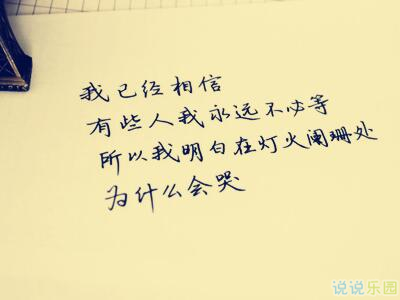 我已经相信
有些人我永远不必等
所以我明白在灯火阑珊处
为什么会哭
说说乐园